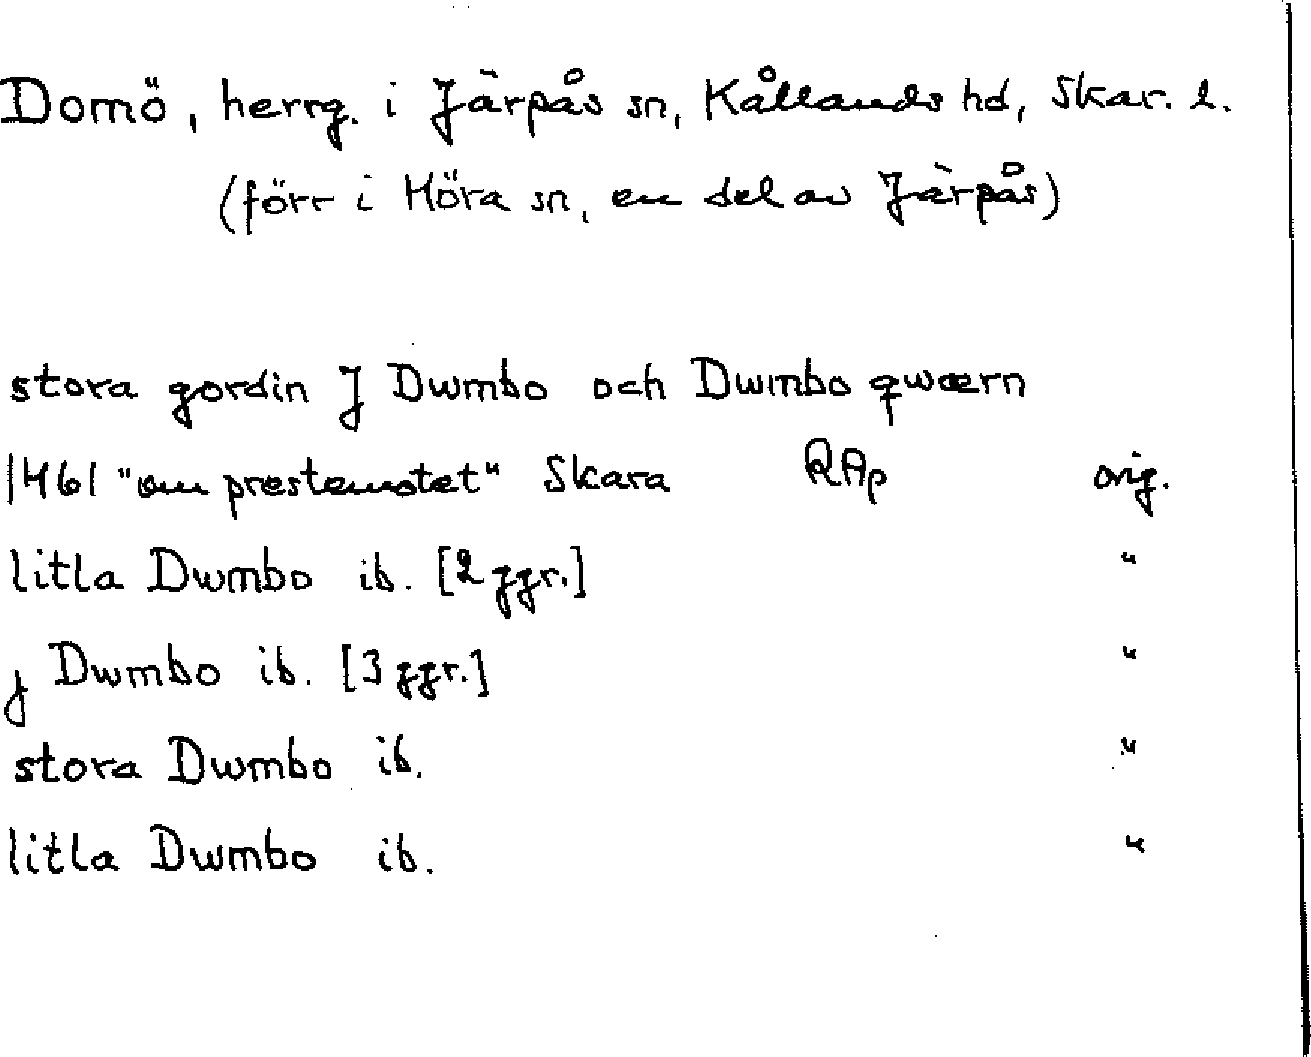 Domö, herrg. i Järpås sn, Kållands hd, Skar. l.
(förr i Höra sn, en del av Järpås)
stora gordin J Dwmbo och Dwmbo qwærn
1461 "om prestemotet" Skara RAp orig.
litla Dwmbo ib. [2 ggr.] "
j Dwmbo ib. [3 ggr.] "
stora Dwmbo ib. "
litla Dwmbo ib. "